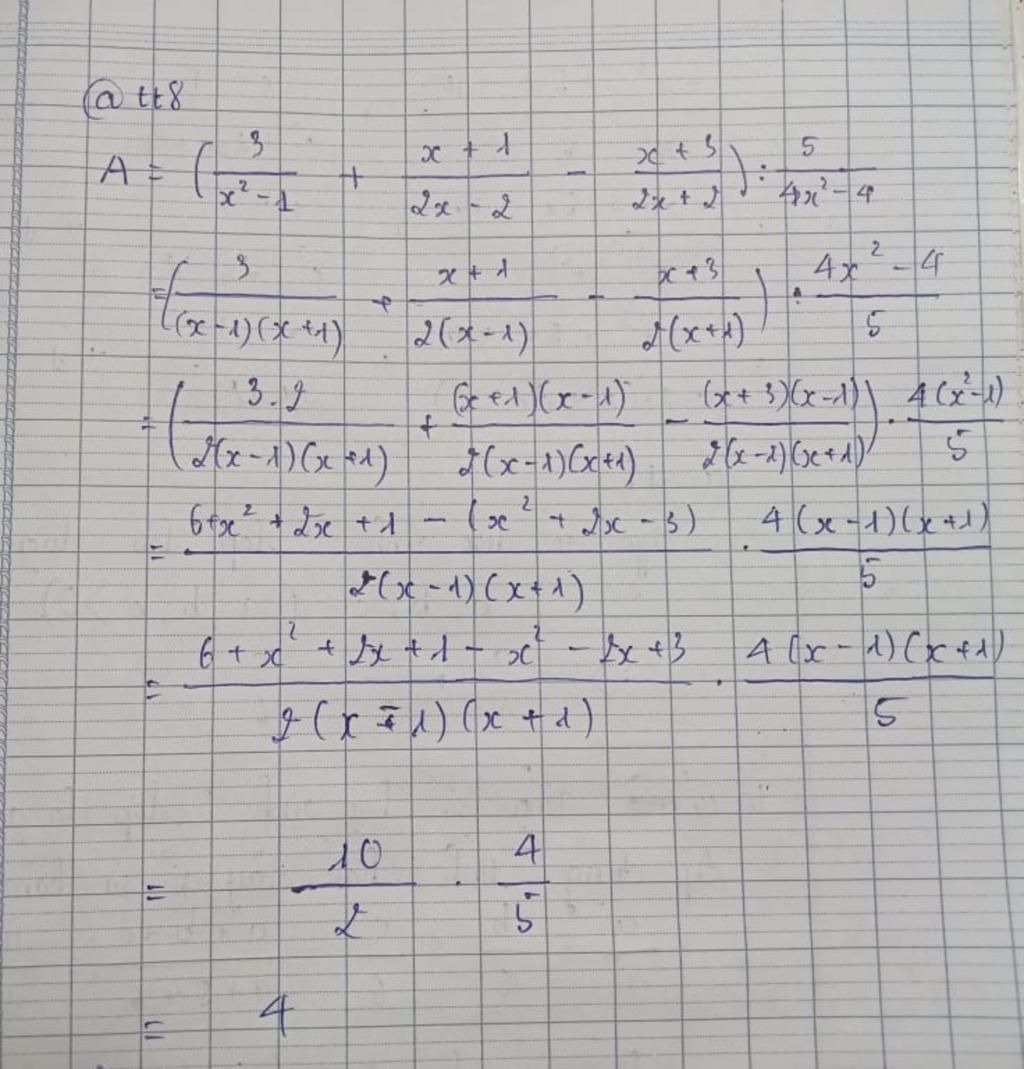 @ tt8
A = (3/(x² - 1) + (x + 1)/(2x - 2) - (x + 3)/(2x + 2)) : 5/(4x² - 4)
= (3/((x-1)(x+1)) + (x+1)/(2(x-1)) - (x+3)/(2(x+1))) · (4x² - 4)/5
= ((3.2)/(2(x-1)(x+1)) + ((x+1)(x-1))/(2(x-1)(x+1)) - ((x+3)(x-1))/(2(x-1)(x+1))) · (4(x²-1))/5
= (6+x² + 2x + 1 - (x² + 2x - 3))/(2(x-1)(x+1)) · (4(x-1)(x+1))/5
= (6 + x² + 2x + 1 - x² - 2x + 3)/(2(x-1)(x+1)) · (4(x-1)(x+1))/5
= 10/2 · 4/5
= 4